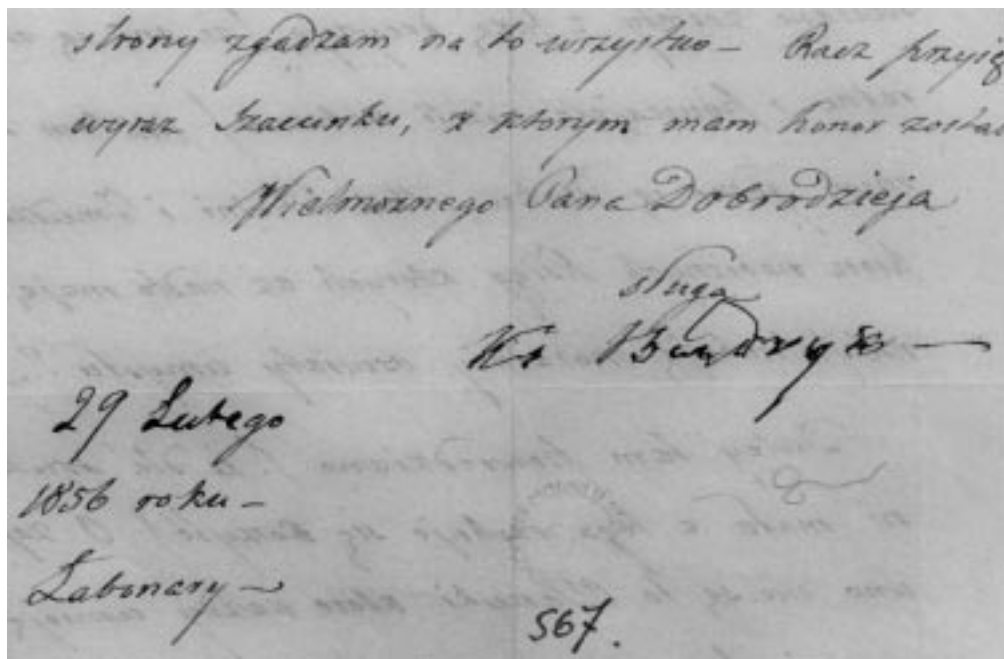 strony zgadzam na to wszystko – Racz przyją
wyraz Szacunku, z którym mam honor zostać
Wielmożnego Pana Dobrodzieja
sługą
29 Lutego
1856 roku –
Łabonary –
567.